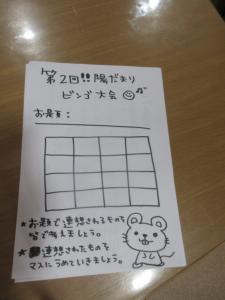 第2回!!陽だまり
ビンゴ大会☺♫
お題:
★お題で連想されるものを
皆で考えましょう。
★連想されたものを
マスにうめていきましょう。